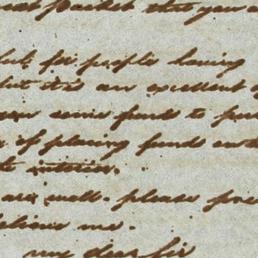 Packet that you
for people having
but it is an excellent
some funds to
of placing funds
interior.
are well. please
believe me.
my dear Sir